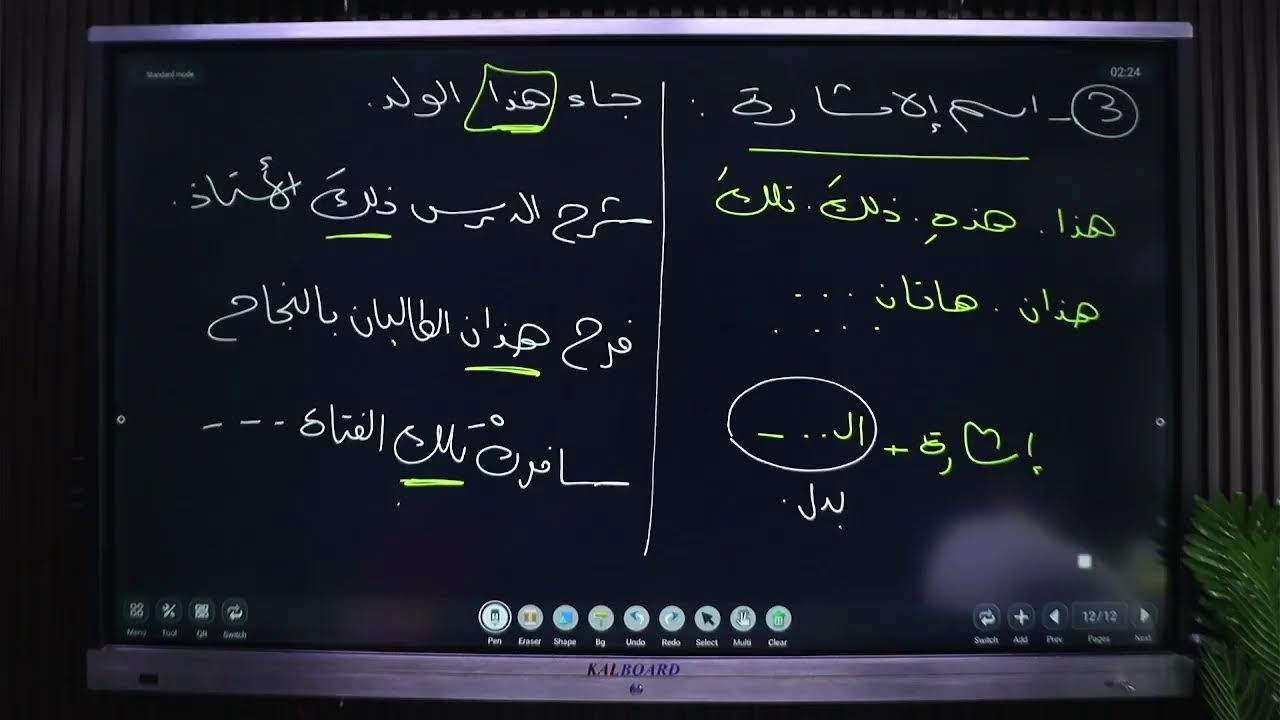 Standard mode
02:24
3 - اسم الإشارة :
هذا . هذهِ . ذلكَ . تلكَ
هذان . هاتان . . .
. . . .
إشارة + الـ . . ـ
بدل .
جاء هذا الولد .
شرح الدرس ذلكَ الأستاذ .
فرح هذان الطالبان بالنجاح
سافرتْ تلك الفتاة - - -
Menu Tool QR Switch
Pen Eraser Shape Bg Undo Redo Select Multi Clear
Switch Add Prev 12/12 Pages Next
KALBOARD